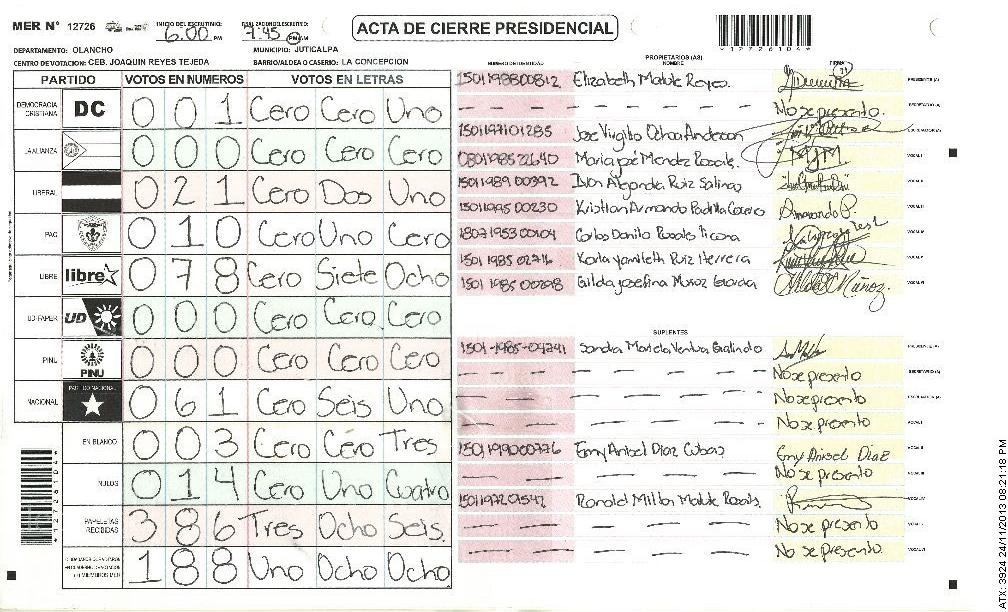 MER Nº 12726
INICIO DEL ESCRUTINIO: 6:00 PM
7:45 PM
ACTA DE CIERRE PRESIDENCIAL
*12726104*
DEPARTAMENTO: OLANCHO
MUNICIPIO: JUTICALPA
CENTRO DE VOTACION: CEB. JOAQUIN REYES TEJEDA
BARRIO/ALDEA O CASERIO: LA CONCEPCION
PARTIDO VOTOS EN NUMEROS VOTOS EN LETRAS
DEMOCRACIA CRISTIANA DC 0 0 1 Cero Cero Uno
LA ALIANZA 0 0 0 Cero Cero Cero
LIBERAL 0 2 1 Cero Dos Uno
PAC 0 1 0 Cero Uno Cero
LIBRE libre 0 7 8 Cero Siete Ocho
UD-FAPER UD 0 0 0 Cero Cero Cero
PINU PINU 0 0 0 Cero Cero Cero
NACIONAL PARTIDO NACIONAL 0 6 1 Cero Seis Uno
EN BLANCO 0 0 3 Cero Cero Tres
NULOS 0 1 4 Cero Uno Cuatro
PAPELETAS RECIBIDAS 3 8 6 Tres Ocho Seis
1 8 8 Uno Ocho Ocho
PROPIETARIOS (AS)
NUMERO DE IDENTIDAD NOMBRE FIRMA
1501198800812 Elizabeth Matute Reyes PRESIDENTE (A)
No se presento SECRETARIO (A)
1501197101285 Jose Virgilio Ochoa Anderson ESCRUTADOR (A)
0801198521640 Maria José Mendez Rosales MJM VOCAL I
1501198900392 Alejandra Ruiz Salinas VOCAL II
1501199500230 Kristian Armando Padilla Armando P. VOCAL III
Carlos Danilo Rosales
1501198502716 Karla Yamileth Ruiz Herrera VOCAL V
Gilda Josefina Munoz Gilda Muñoz VOCAL VI
SUPLENTES
1501-1985-04241 Sandra Mariela Ventura Galindo PRESIDENTE (A)
No se presento SECRETARIO (A)
No se presento ESCRUTADOR (A)
No se presento VOCAL I
1501199000776 Emy Anisel Diaz Cubas Emy Anisel Diaz VOCAL II
No se presento VOCAL III
Ronald Milton Matute Rosales VOCAL IV
No se presento VOCAL V
No se presento VOCAL VI
ATX: 3924 24/11/2013 08:21:18 PM